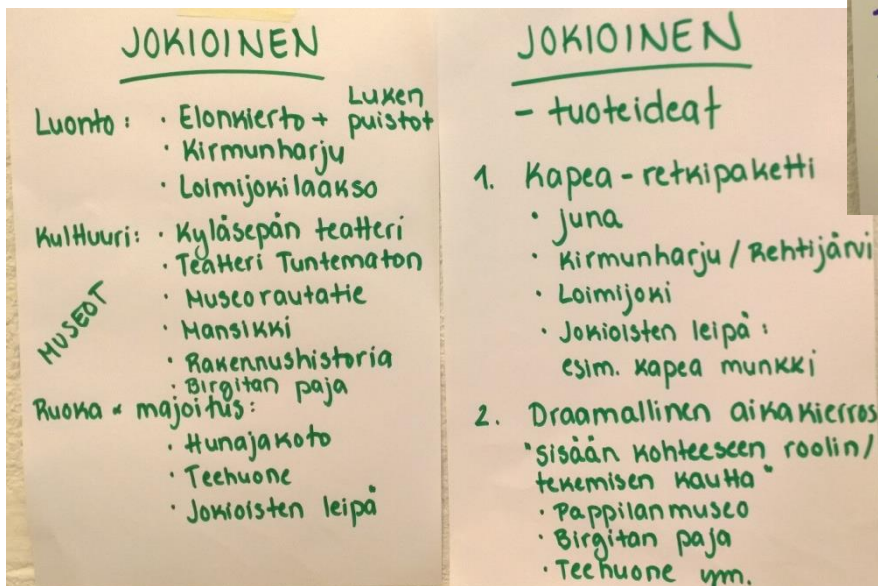 JOKIOINEN
Luonto: · Elonkierto + Luken puistot
· Kirmunharju
· Loimijokilaakso
Kulttuuri: · Kyläsepän teatteri
· Teatteri Tuntematon
MUSEOT
· Museorautatie
· Mansikki
· Rakennushistoria
· Birgitan paja
Ruoka & majoitus:
· Hunajakoto
· Teehuone
· Jokioisten leipä
JOKIOINEN
- tuoteideat
1. Kapea-retkipaketti
· juna
· Kirmunharju / Rehtijärvi
· Loimijoki
· Jokioisten leipä:
esim. kapea munkki
2. Draamallinen aikakierros
"sisään kohteeseen roolin/
tekemisen kautta"
· Pappilanmuseo
· Birgitan paja
· Teehuone ym.